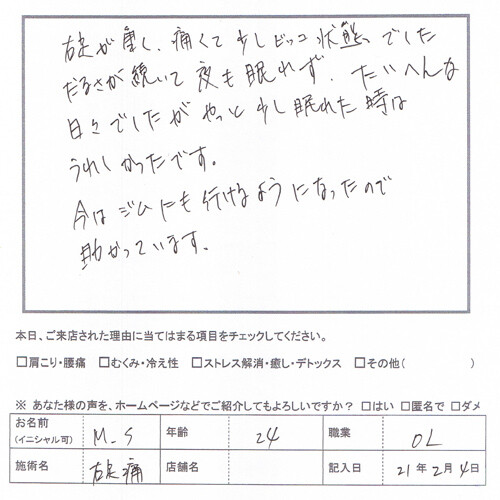 右足が重く、痛くて少しビッコ状態でした
だるさが続いて夜も眠れず、たいへんな
日々でしたがやっと少し眠れた時は
うれしかったです。
今はジムにも行けるようになったので
助かっています。
本日、ご来店された理由に当てはまる項目をチェックしてください。
□肩こり・腰痛 □むくみ・冷え性 □ストレス解消・癒し・デトックス □その他( )
※ あなた様の声を、ホームページなどでご紹介してもよろしいですか? □はい □匿名で □ダメ
お名前 (イニシャル可) M-S 年齢 24 職業 OL
施術名 右足痛 店舗名 記入日 21年2月4日